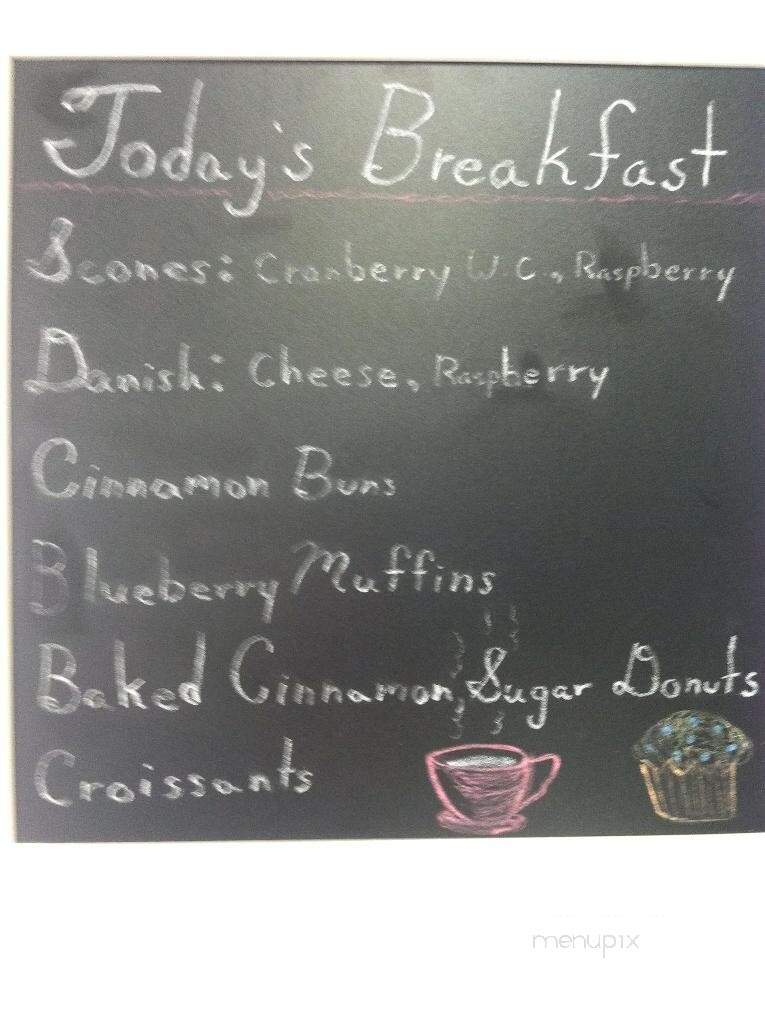 Today's Breakfast
Scones: Cranberry W.C., Raspberry
Danish: Cheese, Raspberry
Cinnamon Buns
Blueberry Muffins
Baked Cinnamon, Sugar Donuts
Croissants
menupix